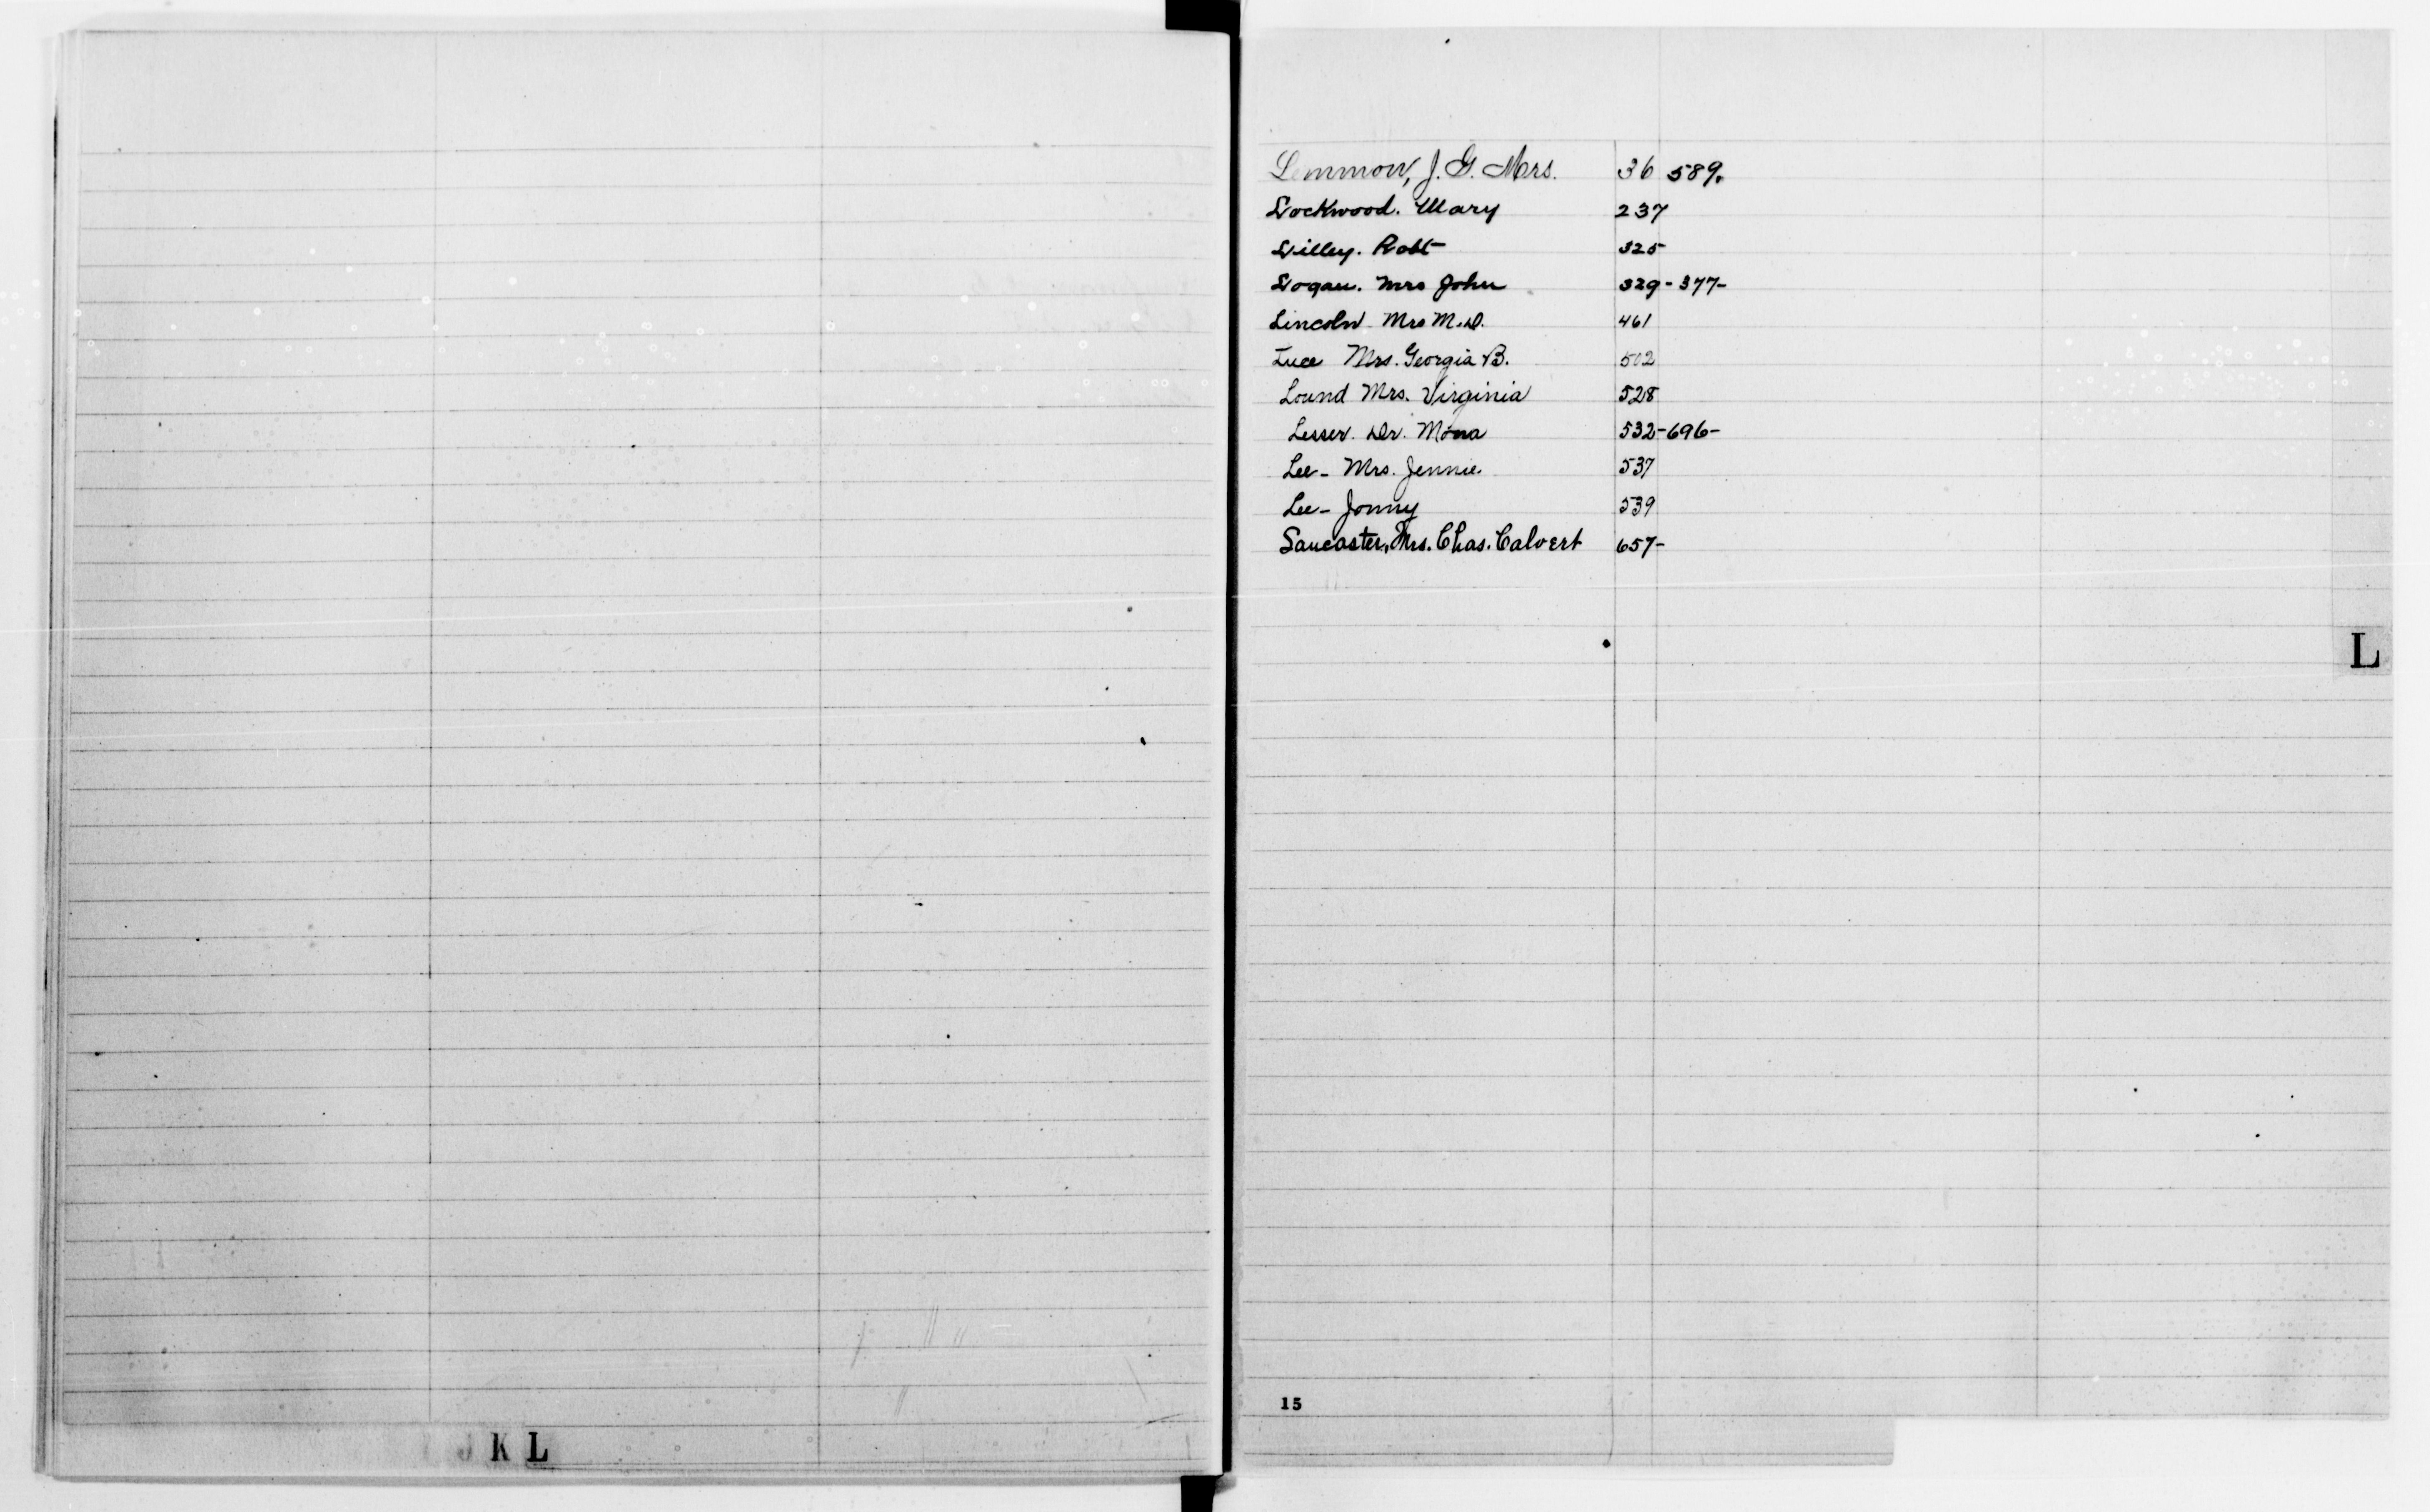 Lemmon, J. G. Mrs. 36 589.
Lockwood. Mary 237
Lilley. Robt 325
Logan. Mrs John 329-377-
Lincoln Mrs M.D. 461
Luce Mrs. Georgia B. 502
Lound Mrs. Virginia 528
Lesser. Dr. Mona 532-696-
Lee- Mrs. Jennie. 537
Lee- Jonny 539
Lancaster, Mrs. Chas. Calvert 657-
L
15
J K L